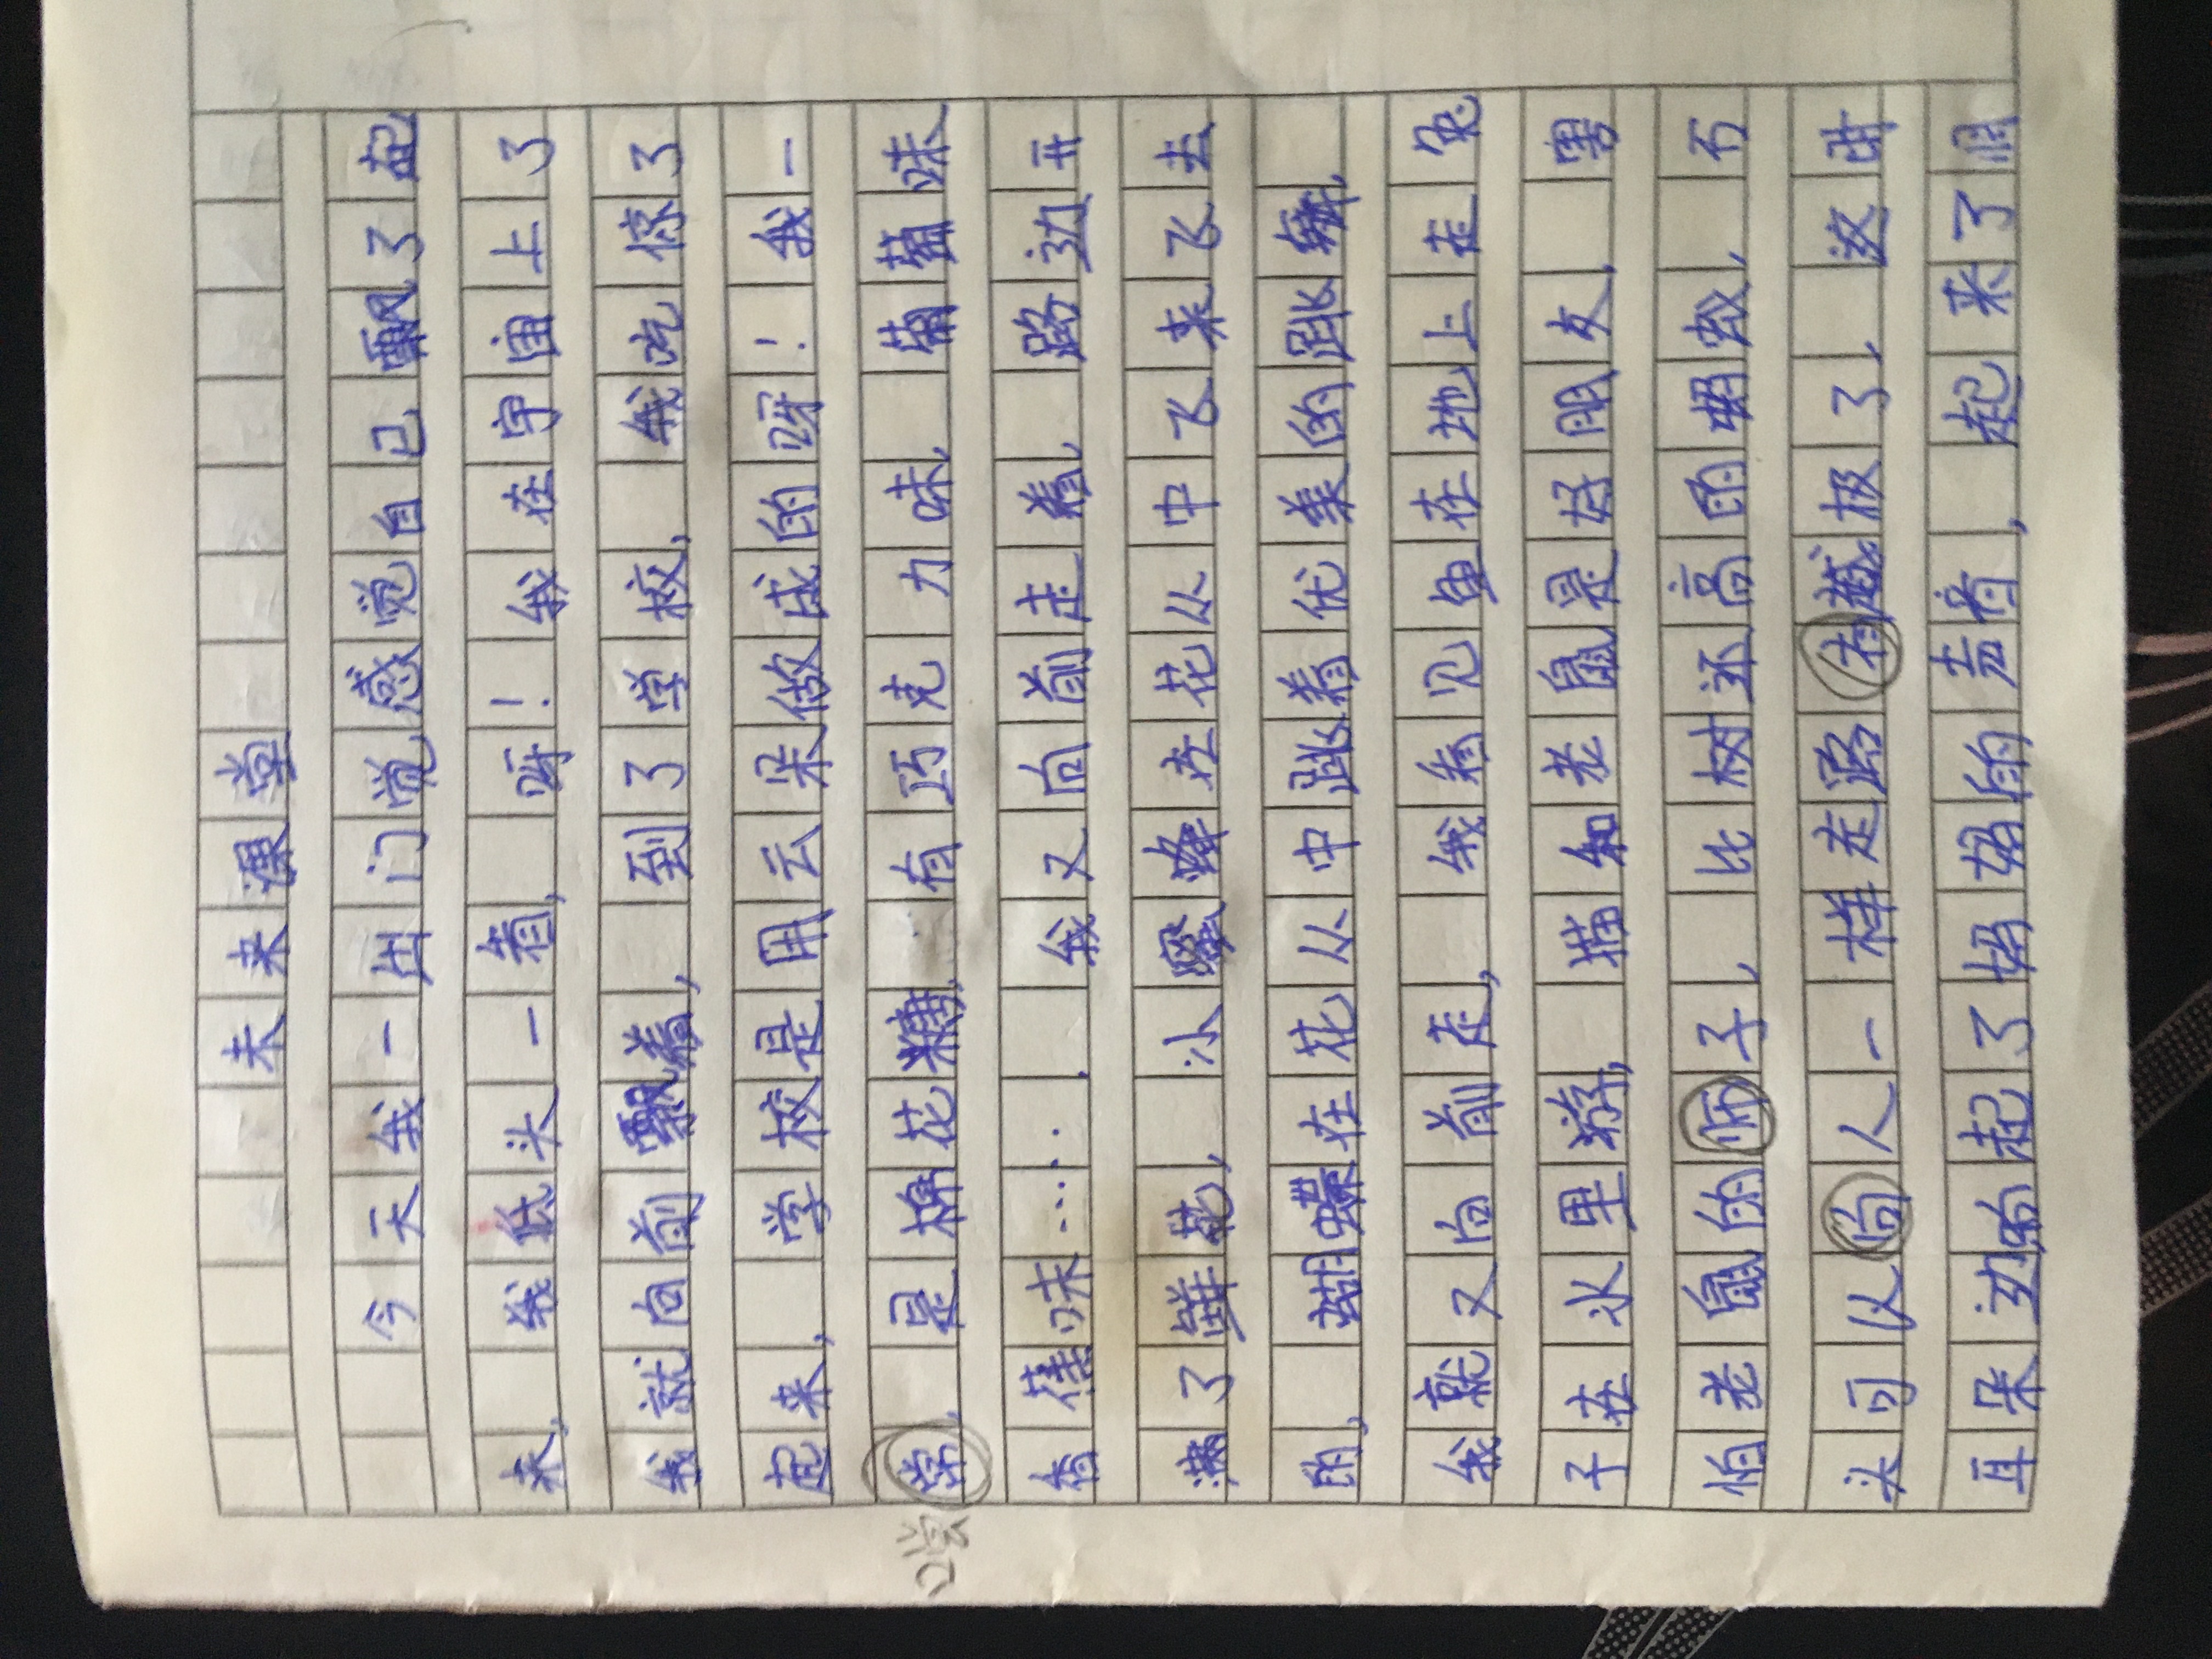 未来课堂
今天我一出门觉感觉自己飘了起
来,我低头一看,呀!我在宇宙上了
我就向前飘着,到了学校,我吃惊了
起来,学校是用云朵做成的呀!我一
尝,是棉花糖,有巧克力味,葡萄味
香蕉味…….我又向前走着,路边开
满了鲜花,小蜜蜂在花从中飞来飞去
的,蝴蝶在花从中跳着优美的跳舞,
我就又向前走,我看见鱼在地上走兔
子在水里游,猫和老鼠是好朋友,害
怕老鼠的师子,比树还高的蚂蚁,石
头可以向人一样走路有趣极了,这时
耳朵边响起了妈妈的声音,起来了